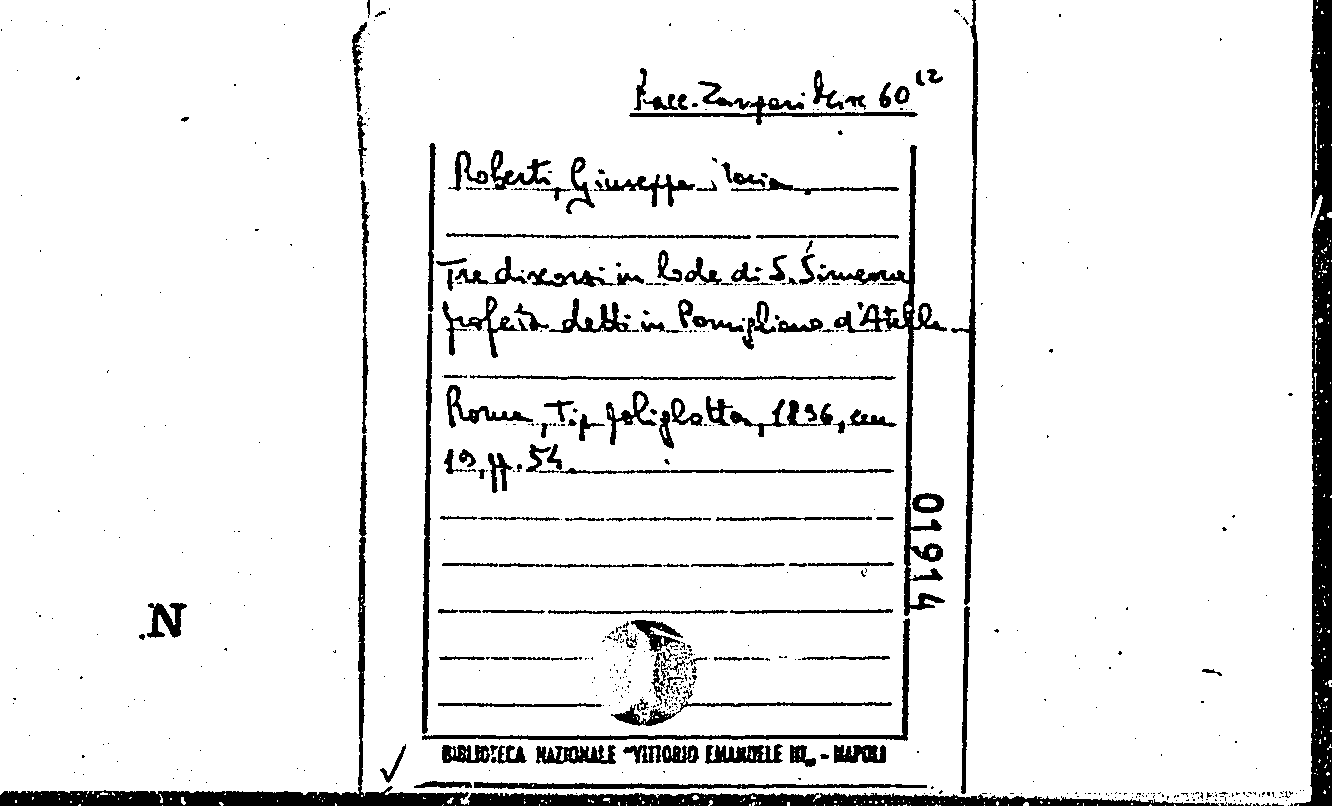 Racc. Zangari Misc 60 12
Roberti, Giuseppe Maria.
Tre discorsi in lode di S. Simeone
profeta detti in Pomigliano d'Atella.
Roma, Tip. poliglotta, 1896, cm
19, pp. 54.
01914
.N
BIBLIOTECA NAZIONALE "VITTORIO EMANUELE III„ - NAPOLI